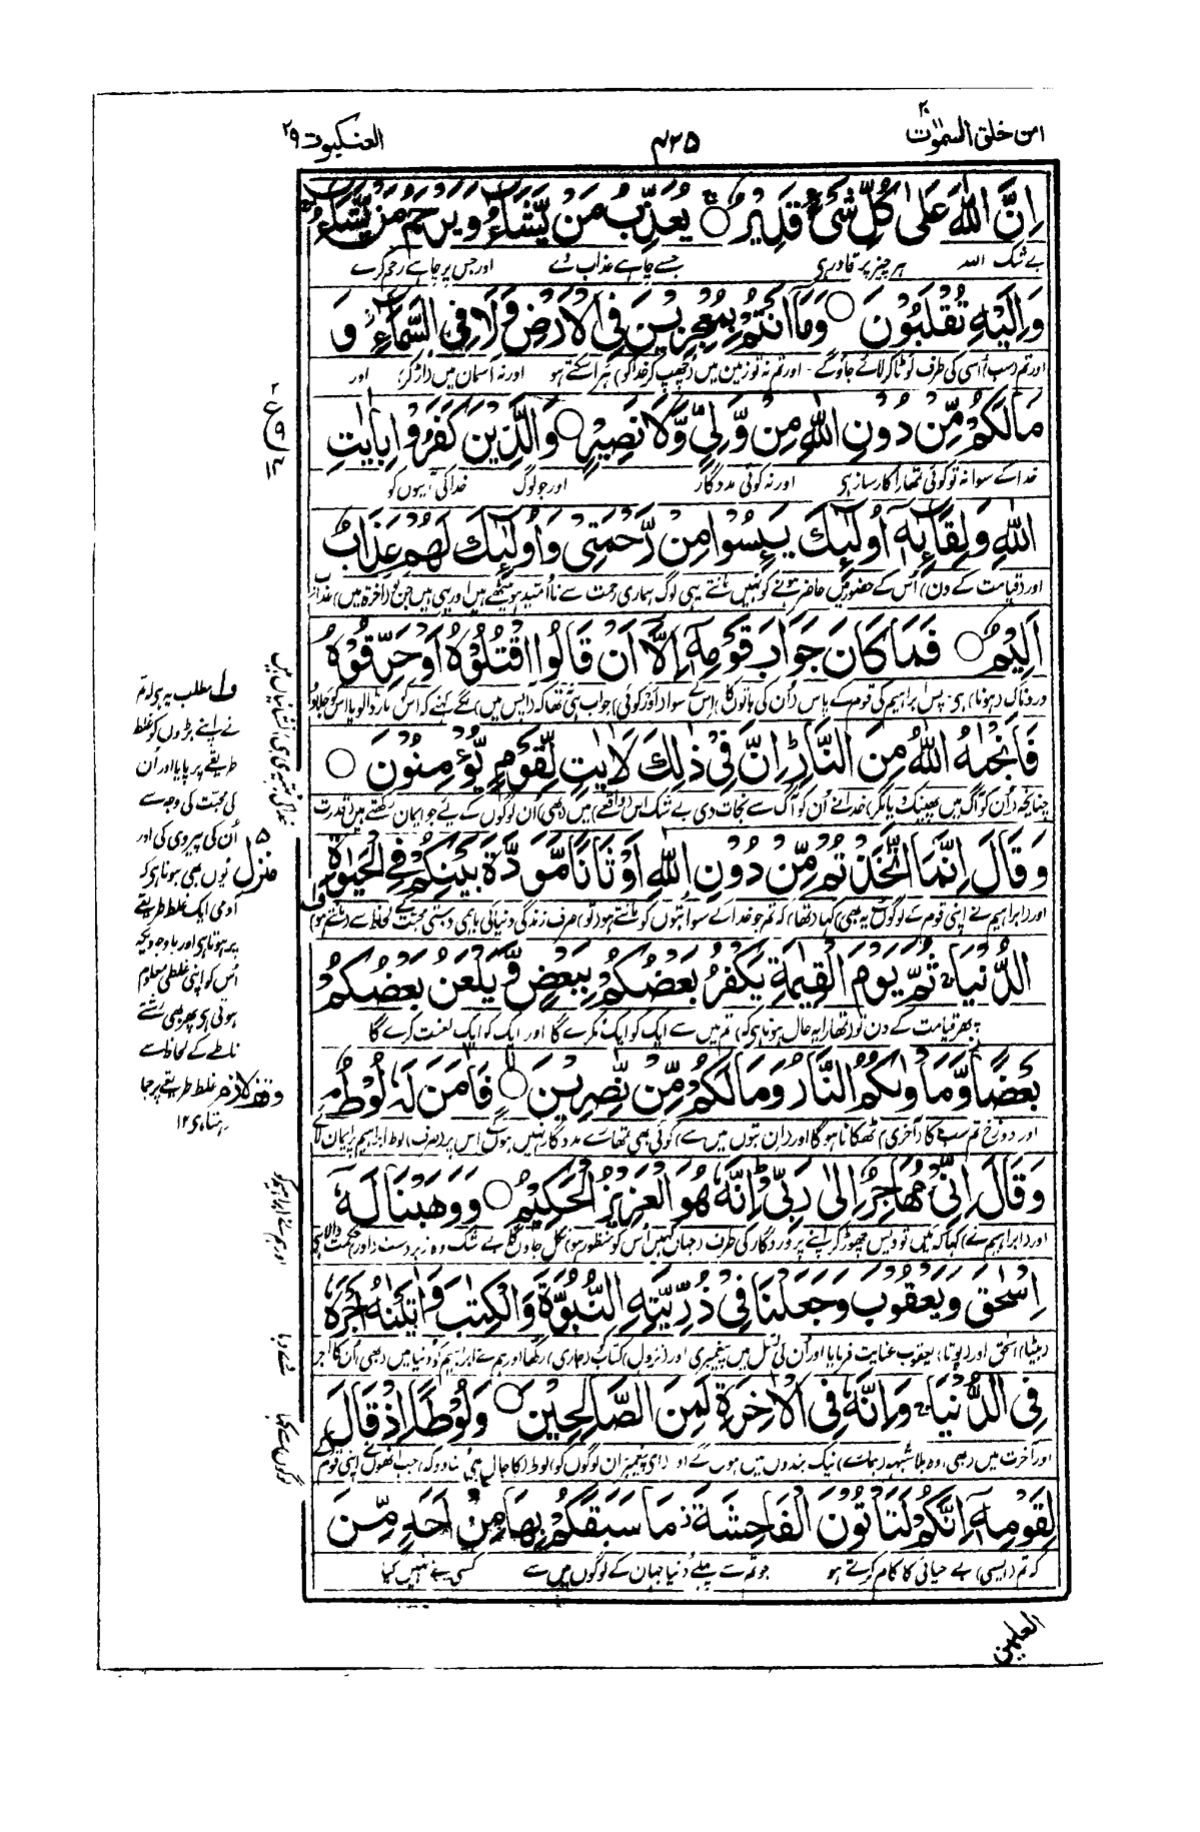 امن خلق السمٰوٰت ۲۰
۴۲۵
العنکبوت ۲۹
اِنَّ اللّٰهَ عَلٰى كُلِّ شَیْءٍ قَدِیْرٌ ۝ یُعَذِّبُ مَنْ یَّشَآءُ وَیَرْحَمُ مَنْ یَّشَآءُ
بے شک اللہ ہر چیز پر قادر ہی جسے چاہے عذاب دے اور جس پر چاہے رحم کرے
وَاِلَیْهِ تُقْلَبُوْنَ ۝ وَمَاۤ اَنْتُمْ بِمُعْجِزِیْنَ فِی الْاَرْضِ وَلَا فِی السَّمَآءِ وَ
اور تم (سب) اسی کی طرف لوٹا کر لائے جاؤ گے - اور تم نہ تو زمین میں (چھپ کر خدا کو) ہرا سکتے ہو اور نہ آسمان میں (اڑ کر) اور
مَا لَكُمْ مِّنْ دُوْنِ اللّٰهِ مِنْ وَّلِیٍّ وَّلَا نَصِیْرٍ ۝ وَالَّذِیْنَ كَفَرُوْا بِاٰیٰتِ
خدا کے سوا نہ تو کوئی تمھارا کارساز ہی اور نہ کوئی مددگار اور جو لوگ خدا کی آیتوں کو
اللّٰهِ وَلِقَآئِهٖۤ اُولٰٓئِكَ یَئِسُوْا مِنْ رَّحْمَتِیْ وَاُولٰٓئِكَ لَهُمْ عَذَابٌ
اور (قیامت کے دن) اُس کے حضور میں حاضر ہونے کو نہیں مانتے یہی لوگ ہماری رحمت سے نا اُمید ہو بیٹھے ہیں اور یہی ہیں جن کو (آخرت میں) عذاب
اَلِیْمٌ ۝ فَمَا كَانَ جَوَابَ قَوْمِهٖۤ اِلَّاۤ اَنْ قَالُوا اقْتُلُوْهُ اَوْ حَرِّقُوْهُ
دردناک (ہونا) ہی - پس ابراہیم کی قوم کے پاس (اُن کی باتوں کا) اِس کے سوا (اور کوئی) جواب نہ تھا کہ (آپس میں) لگے کہنے کہ اس کو مار ڈالو یا اس کو جلا دو
فَاَنْجٰىهُ اللّٰهُ مِنَ النَّارِ ؕ اِنَّ فِیْ ذٰلِكَ لَاٰیٰتٍ لِّقَوْمٍ یُّؤْمِنُوْنَ ۝
چنانچہ (اُن کو آگ میں پھینک دیا مگر) خدا نے اُن کو آگ سے نجات دی بے شک اس (واقعے) میں (بھی) اُن لوگوں کے لیے جو ایمان رکھتے ہیں (قدرت
وَقَالَ اِنَّمَا اتَّخَذْتُمْ مِّنْ دُوْنِ اللّٰهِ اَوْثَانًا مَّوَدَّةَ بَیْنِكُمْ فِی الْحَیٰوةِ
اور (ابراہیم نے اپنی قوم کے لوگوں سے یہ بھی) کہا (تھا) کہ تم جو خدا کے سوا بتوں کو مانتے ہو (تو) صرف زندگی دنیا کی باہمی دوستی محبت کے لحاظ سے (مانتے ہو)
الدُّنْیَا ۚ ثُمَّ یَوْمَ الْقِیٰمَةِ یَكْفُرُ بَعْضُكُمْ بِبَعْضٍ وَّیَلْعَنُ بَعْضُكُمْ
پھر قیامت کے دن تو (تمھارا یہ حال ہونا ہی کہ) تم میں سے ایک کو ایک نکرے گا اور ایک کو ایک لعنت کرے گا
بَعْضًا وَّمَاْوٰىكُمُ النَّارُ وَمَا لَكُمْ مِّنْ نّٰصِرِیْنَ ۝ فَاٰمَنَ لَهٗ لُوْطٌ ۘ
اور دوزخ تم سب کا (آخری) ٹھکانا ہو گا اور (ان بتوں میں سے) کوئی بھی تمھارے مددگار نہیں ہوں گے اس پر (صرف) لوط ابراہیم پر ایمان لائے
وَقَالَ اِنِّیْ مُهَاجِرٌ اِلٰى رَبِّیْ ؕ اِنَّهٗ هُوَ الْعَزِیْزُ الْحَكِیْمُ ۝ وَوَهَبْنَا لَهٗۤ
اور (ابراہیم نے) کہا کہ میں تو دیس چھوڑ کر اپنے پروردگار کی طرف (جہاں کہیں اُس کو منظور ہو) نکل جاؤں گا بے شک وہ زبردست (اور) حکمت والا ہی
اِسْحٰقَ وَیَعْقُوْبَ وَجَعَلْنَا فِیْ ذُرِّیَّتِهِ النُّبُوَّةَ وَالْكِتٰبَ وَاٰتَیْنٰهُ اَجْرَهٗ
(بیٹا) اسحٰق اور (پوتا) یعقوب عنایت فرمایا اور اُن کی نسل میں پیغمبری اور (نزول) کتاب کو (جاری) رکھا اور ہم نے ابراہیم کو دنیا میں (بھی) اُن کا اجر
فِی الدُّنْیَا ۚ وَاِنَّهٗ فِی الْاٰخِرَةِ لَمِنَ الصّٰلِحِیْنَ ۝ وَلُوْطًا اِذْ قَالَ
اور آخرت میں (بھی) وہ بلا شبہہ (ہمارے) نیک بندوں میں ہوں گے اور (اے پیغمبر ان لوگوں کو) لوط (کا حال بھی سنا دو کہ) جب انھوں نے اپنی قوم کے
لِقَوْمِهٖۤ اِنَّكُمْ لَتَاْتُوْنَ الْفَاحِشَةَ ؗ مَا سَبَقَكُمْ بِهَا مِنْ اَحَدٍ مِّنَ
کہ تم (ایسی) بے حیائی کا کام کرتے ہو جو تم سے پہلے دُنیا جہان کے لوگوں میں سے کسی نے نہیں کیا
العلمین
خدا کی بہتیری ہی نشانیاں ہیں
اور ہم نے ابراہیم کو
دے دیا
لوگوں سے کہا
ف۱ مطلب یہ ہی کہ تم
نے اپنے بڑوں کو غلط
طریقے پر پایا اور اُن
کی محبت کی وجہ سے
اُن کی پیروی کی اور
منزل ۵
یوں بھی ہوتا ہی کہ
آدمی ایک غلط طریقے
پر ہوتا ہی اور باوجودیکہ
اُس کو اپنی غلطی معلوم
ہوتی ہی پھر بھی رشتے
ناطے کے لحاظ سے
وقف لازم
غلط طریقے پر جما
رہتا ہی ۱۲